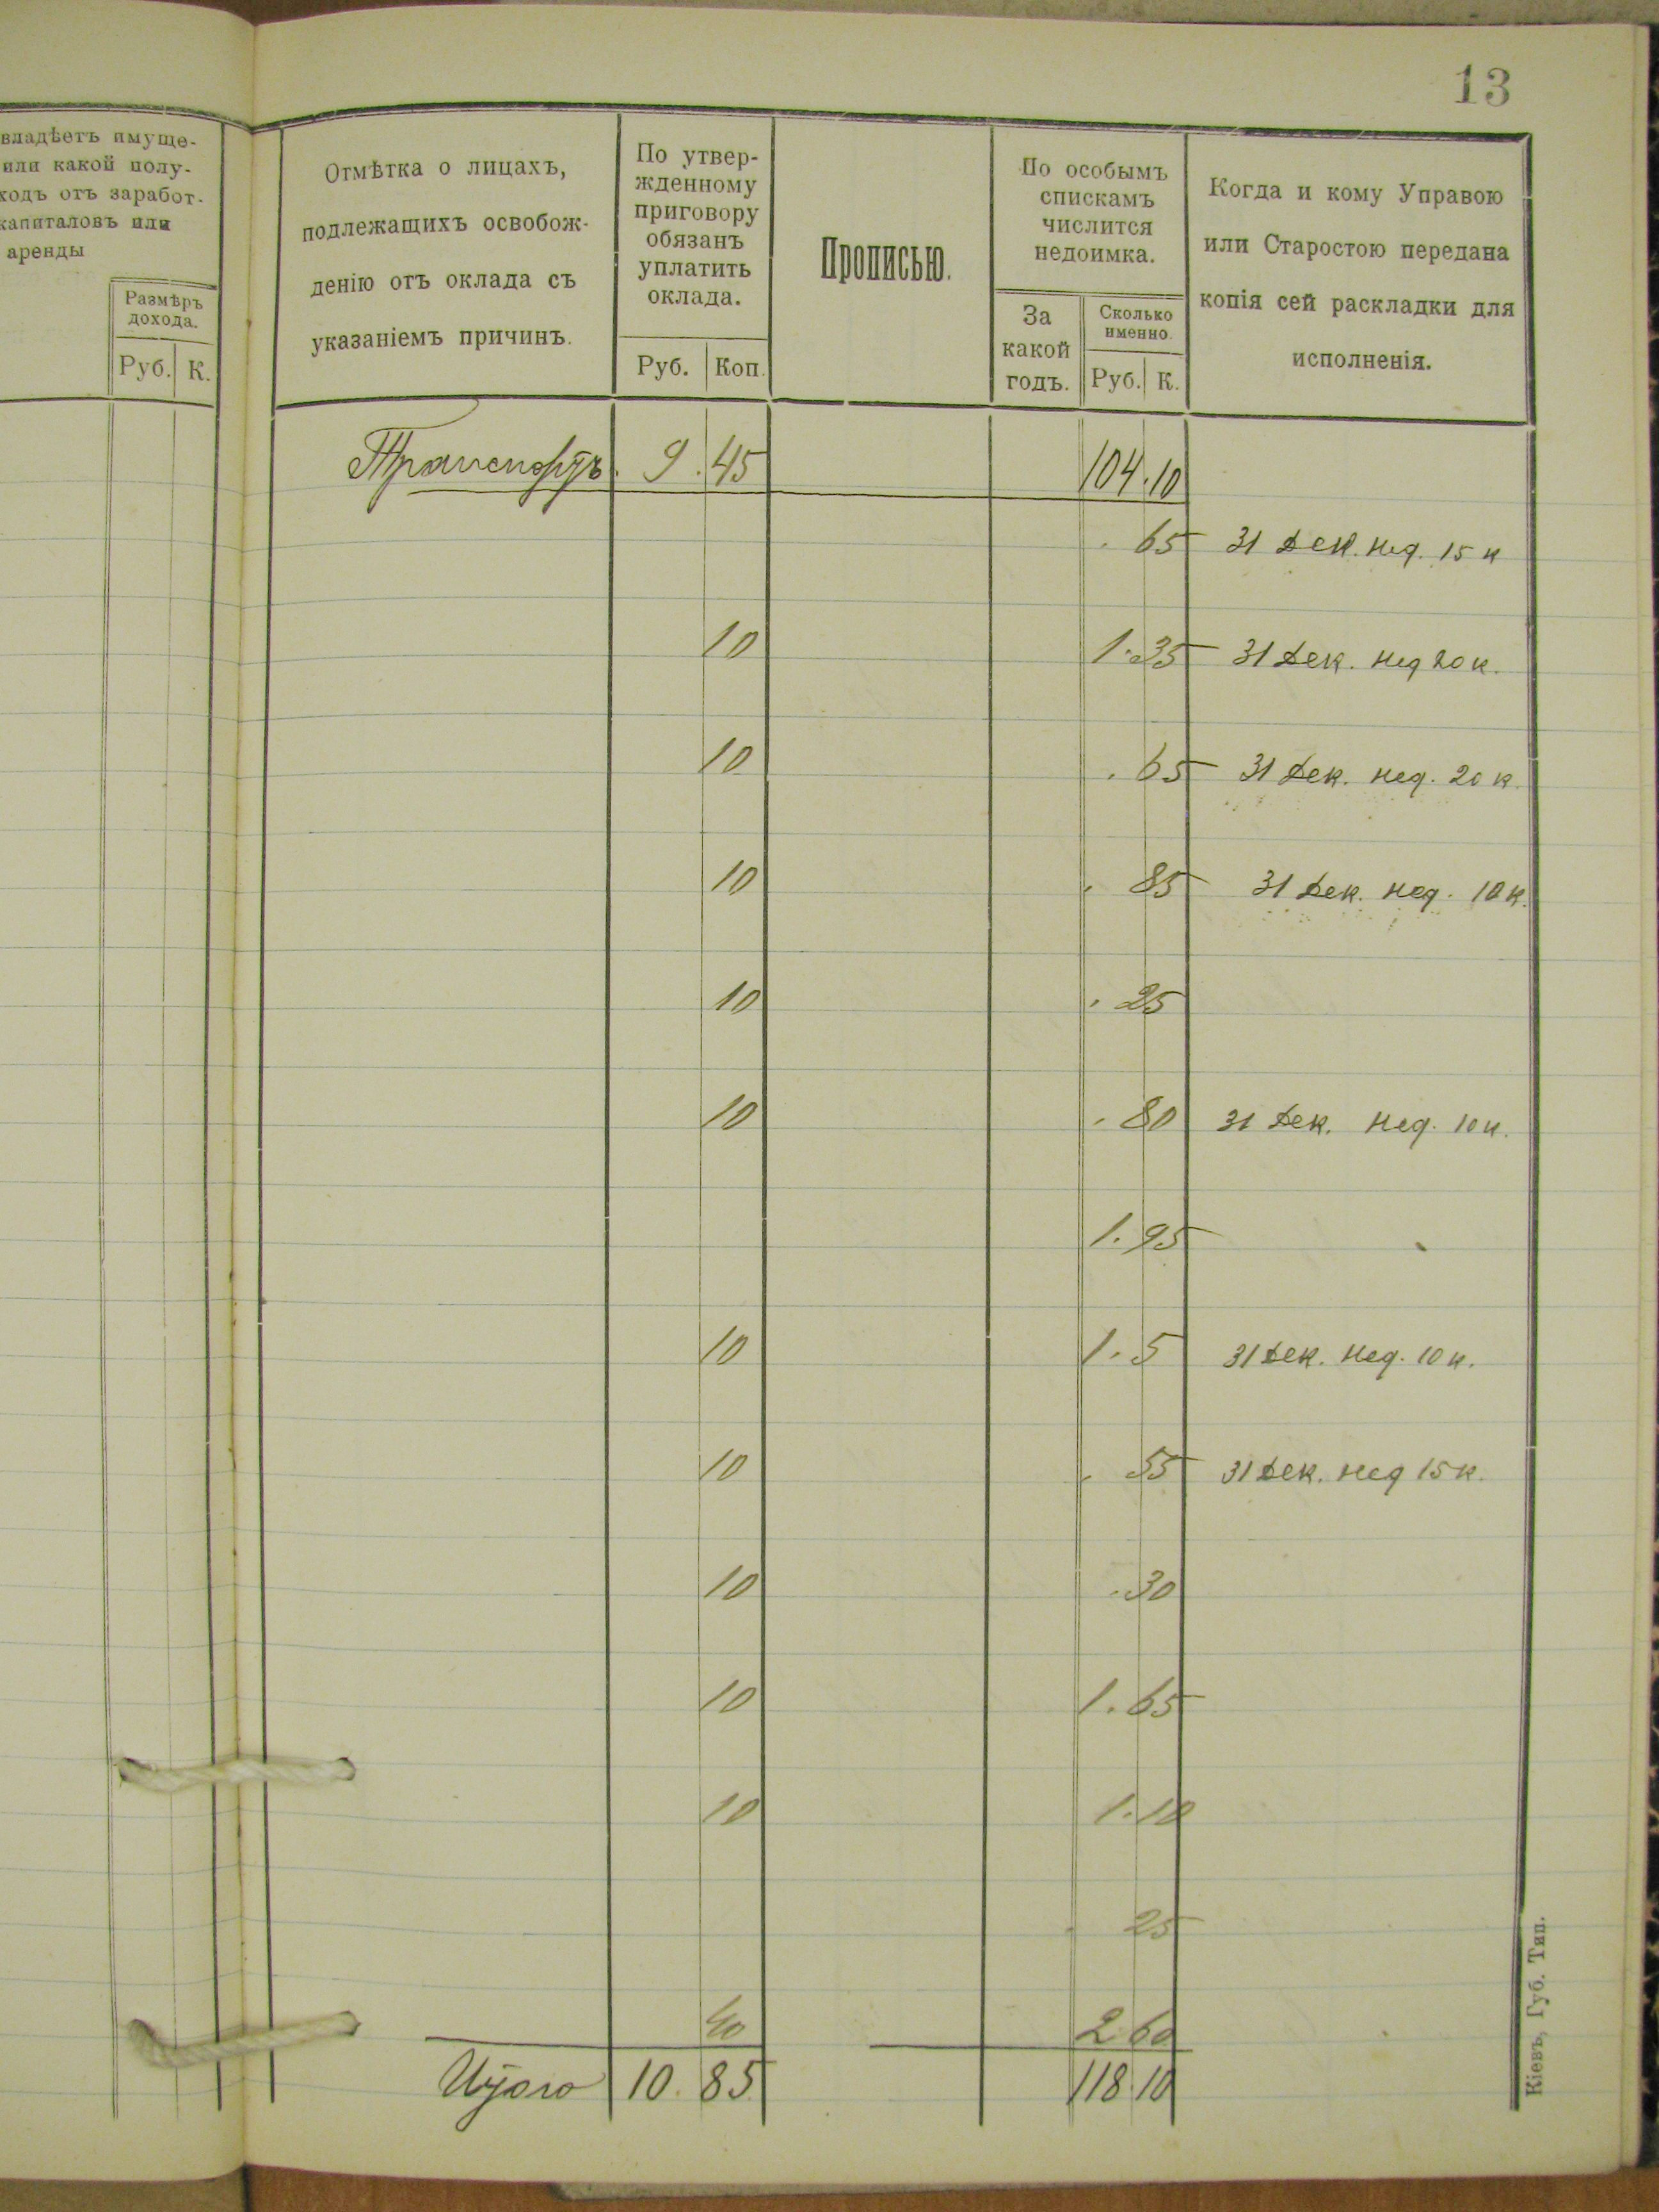 13
владѣетъ имуще-
или какой полу-
ходъ отъ заработ-
капиталовъ или
аренды
Размѣръ
дохода.
Руб. К.
Отмѣтка о лицахъ,
подлежащихъ освобож-
денію отъ оклада съ
указаніемъ причинъ.
По утвер-
жденному
приговору
обязанъ
уплатить
оклада.
Руб. Коп.
Прописью.
По особымъ
спискамъ
числится
недоимка.
За
какой
годъ.
Сколько
именно.
Руб. К.
Когда и кому Управою
или Старостою передана
копія сей раскладки для
исполненія.
Транспортъ. 9.45 104.10
. 65 31 Дек. нед. 15 к
10 1.35 31 Дек. нед 20 к.
10 . 65 31 Дек. нед. 20 к.
10 . 85 31 Дек. нед. 10 к.
10 . 25
10 . 80 31 Дек. нед. 10 к.
1.95
10 1.5 31 Дек. нед. 10 к.
10 . 55 31 Дек. нед 15 к.
10 . 30
10 1.65
10 1.10
. 25
40 2 60
Итого 10.85 118.10
Кіевъ, Губ. Тип.